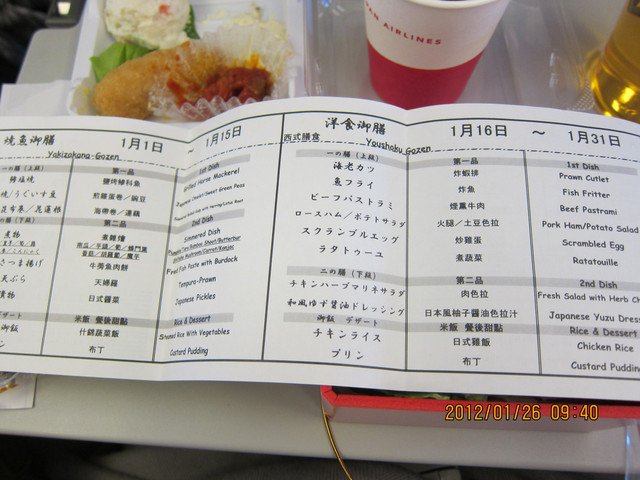 AN AIRLINES
焼魚御膳
1月1日 ~ 1月15日
Yakizakana-Gozen
一の膳（上段）
第一品
1st Dish
鹽烤鰺科魚
Grilled Horse Mackerel
煎雞蛋卷／豌豆
海帶卷／蓮藕
二の膳（下段）
第二品
2nd Dish
煮物
煮雜燴
Simmered Dish
さつま揚げ
牛蒡魚肉餅
Fried Fish Paste with Burdock
天ぷら
天婦羅
Tempura-Prawn
漬物
日式醬菜
Japanese Pickles
米飯 餐後甜點
Rice & Dessert
什錦蔬菜飯
Steamed Rice With Vegetables
布丁
Custard Pudding
洋食御膳
1月16日 ~ 1月31日
西式膳食
Youshoku Gozen
一の膳（上段）
第一品
1st Dish
海老カツ
炸蝦排
Prawn Cutlet
魚フライ
炸魚
Fish Fritter
ビーフパストラミ
煙薰牛肉
Beef Pastrami
ロースハム／ポテトサラダ
火腿／土豆色拉
Pork Ham/Potato Salad
スクランブルエッグ
炒雞蛋
Scrambled Egg
ラタトゥーユ
煮蔬菜
Ratatouille
二の膳（下段）
第二品
2nd Dish
チキンハーブマリネサラダ
肉色拉
Fresh Salad with Herb
和風ゆず醤油ドレッシング
日本風柚子醬油色拉汁
Japanese Yuzu Dres
御飯 デザート
米飯 餐後甜點
Rice & Dessert
チキンライス
日式雞飯
Chicken Rice
プリン
布丁
Custard Puddin
2012/01/26 09:40